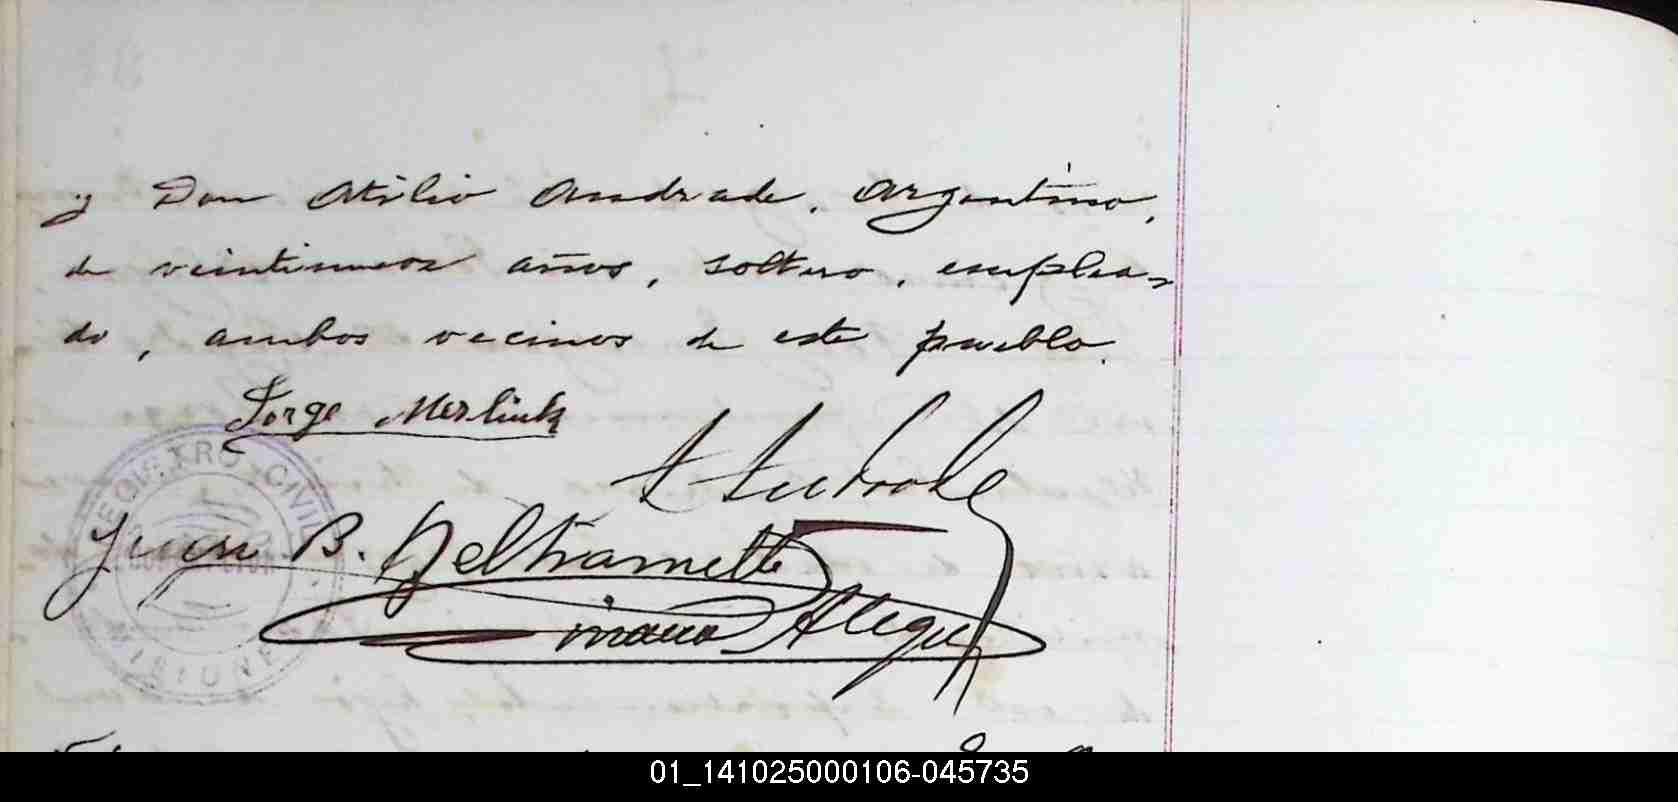 y Don Atilio Andrade, Argentino,
de veintinueve años, soltero, emplea-
do, ambos vecinos de este pueblo.
Jorge
A Andrade
REGISTRO CIVIL
Juan B. Beltrametti
MISIONES
01_141025000106-045735